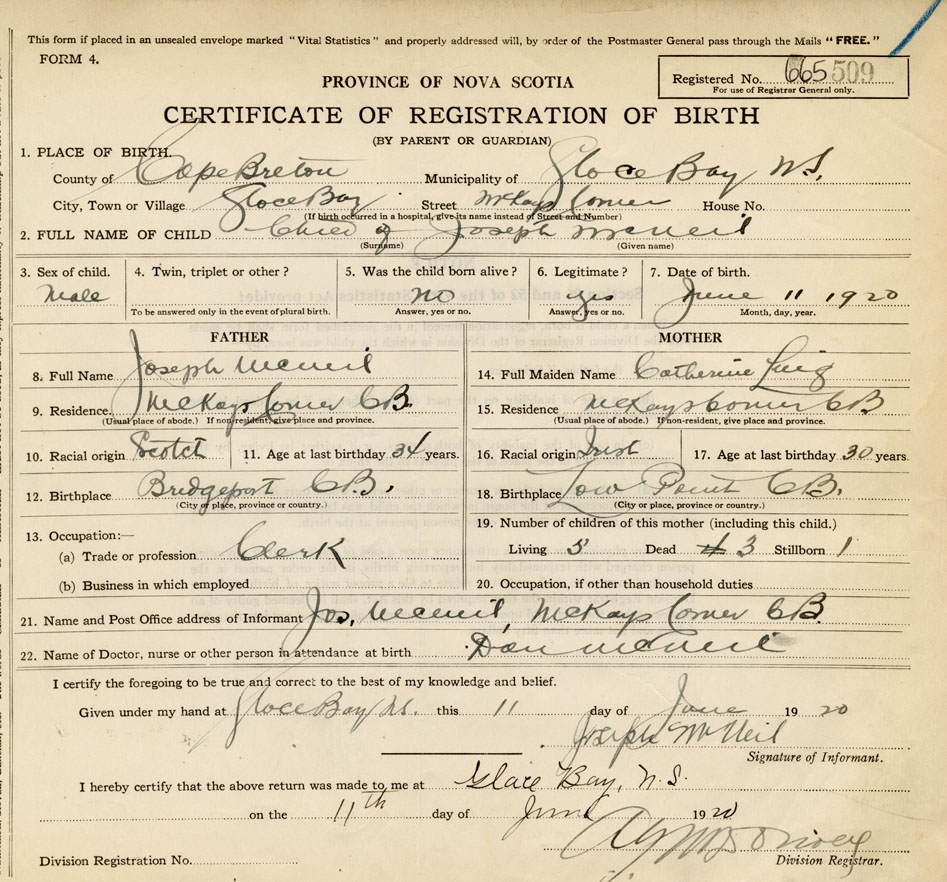 This form if placed in an unsealed envelope marked "Vital Statistics" and properly addressed will, by order of the Postmaster General pass through the Mails "FREE."
FORM 4.
Registered No. 665 509
For use of Registrar General only.
PROVINCE OF NOVA SCOTIA
CERTIFICATE OF REGISTRATION OF BIRTH
(BY PARENT OR GUARDIAN)
1. PLACE OF BIRTH.
County of Cape Breton Municipality of Glace Bay N.S.
City, Town or Village Glace Bay Street McKays Corner House No.
(If birth occurred in a hospital, give its name instead of Street and Number)
2. FULL NAME OF CHILD Child of Joseph McNeil
(Surname) (Given name)
3. Sex of child. 4. Twin, triplet or other? 5. Was the child born alive? 6. Legitimate? 7. Date of birth.
Male no yes June 11 1920
To be answered only in the event of plural birth. Answer, yes or no. Answer, yes or no. Month, day, year.
FATHER MOTHER
8. Full Name Joseph McNeil 14. Full Maiden Name Catherine
9. Residence. McKays Corner C.B. 15. Residence McKays Corner C.B
(Usual place of abode.) If non-resident, give place and province. (Usual place of abode.) If non-resident, give place and province.
10. Racial origin Scotch 11. Age at last birthday 34 years. 16. Racial origin Irish 17. Age at last birthday 30 years.
12. Birthplace Bridgeport C.B. 18. Birthplace Low Point C.B.
(City or place, province or country.) (City or place, province or country.)
13. Occupation:— 19. Number of children of this mother (including this child.)
(a) Trade or profession Clerk Living 5 Dead 3 Stillborn 1
(b) Business in which employed 20. Occupation, if other than household duties
21. Name and Post Office address of Informant Jos. McNeil, McKays Corner C.B.
22. Name of Doctor, nurse or other person in attendance at birth Dan McNeil
I certify the foregoing to be true and correct to the best of my knowledge and belief.
Given under my hand at Glace Bay N.S. this 11 day of June 1920
Joseph McNeil
Signature of Informant.
I hereby certify that the above return was made to me at Glace Bay, N.S.
on the 11th day of June 1920
Division Registration No. Division Registrar.